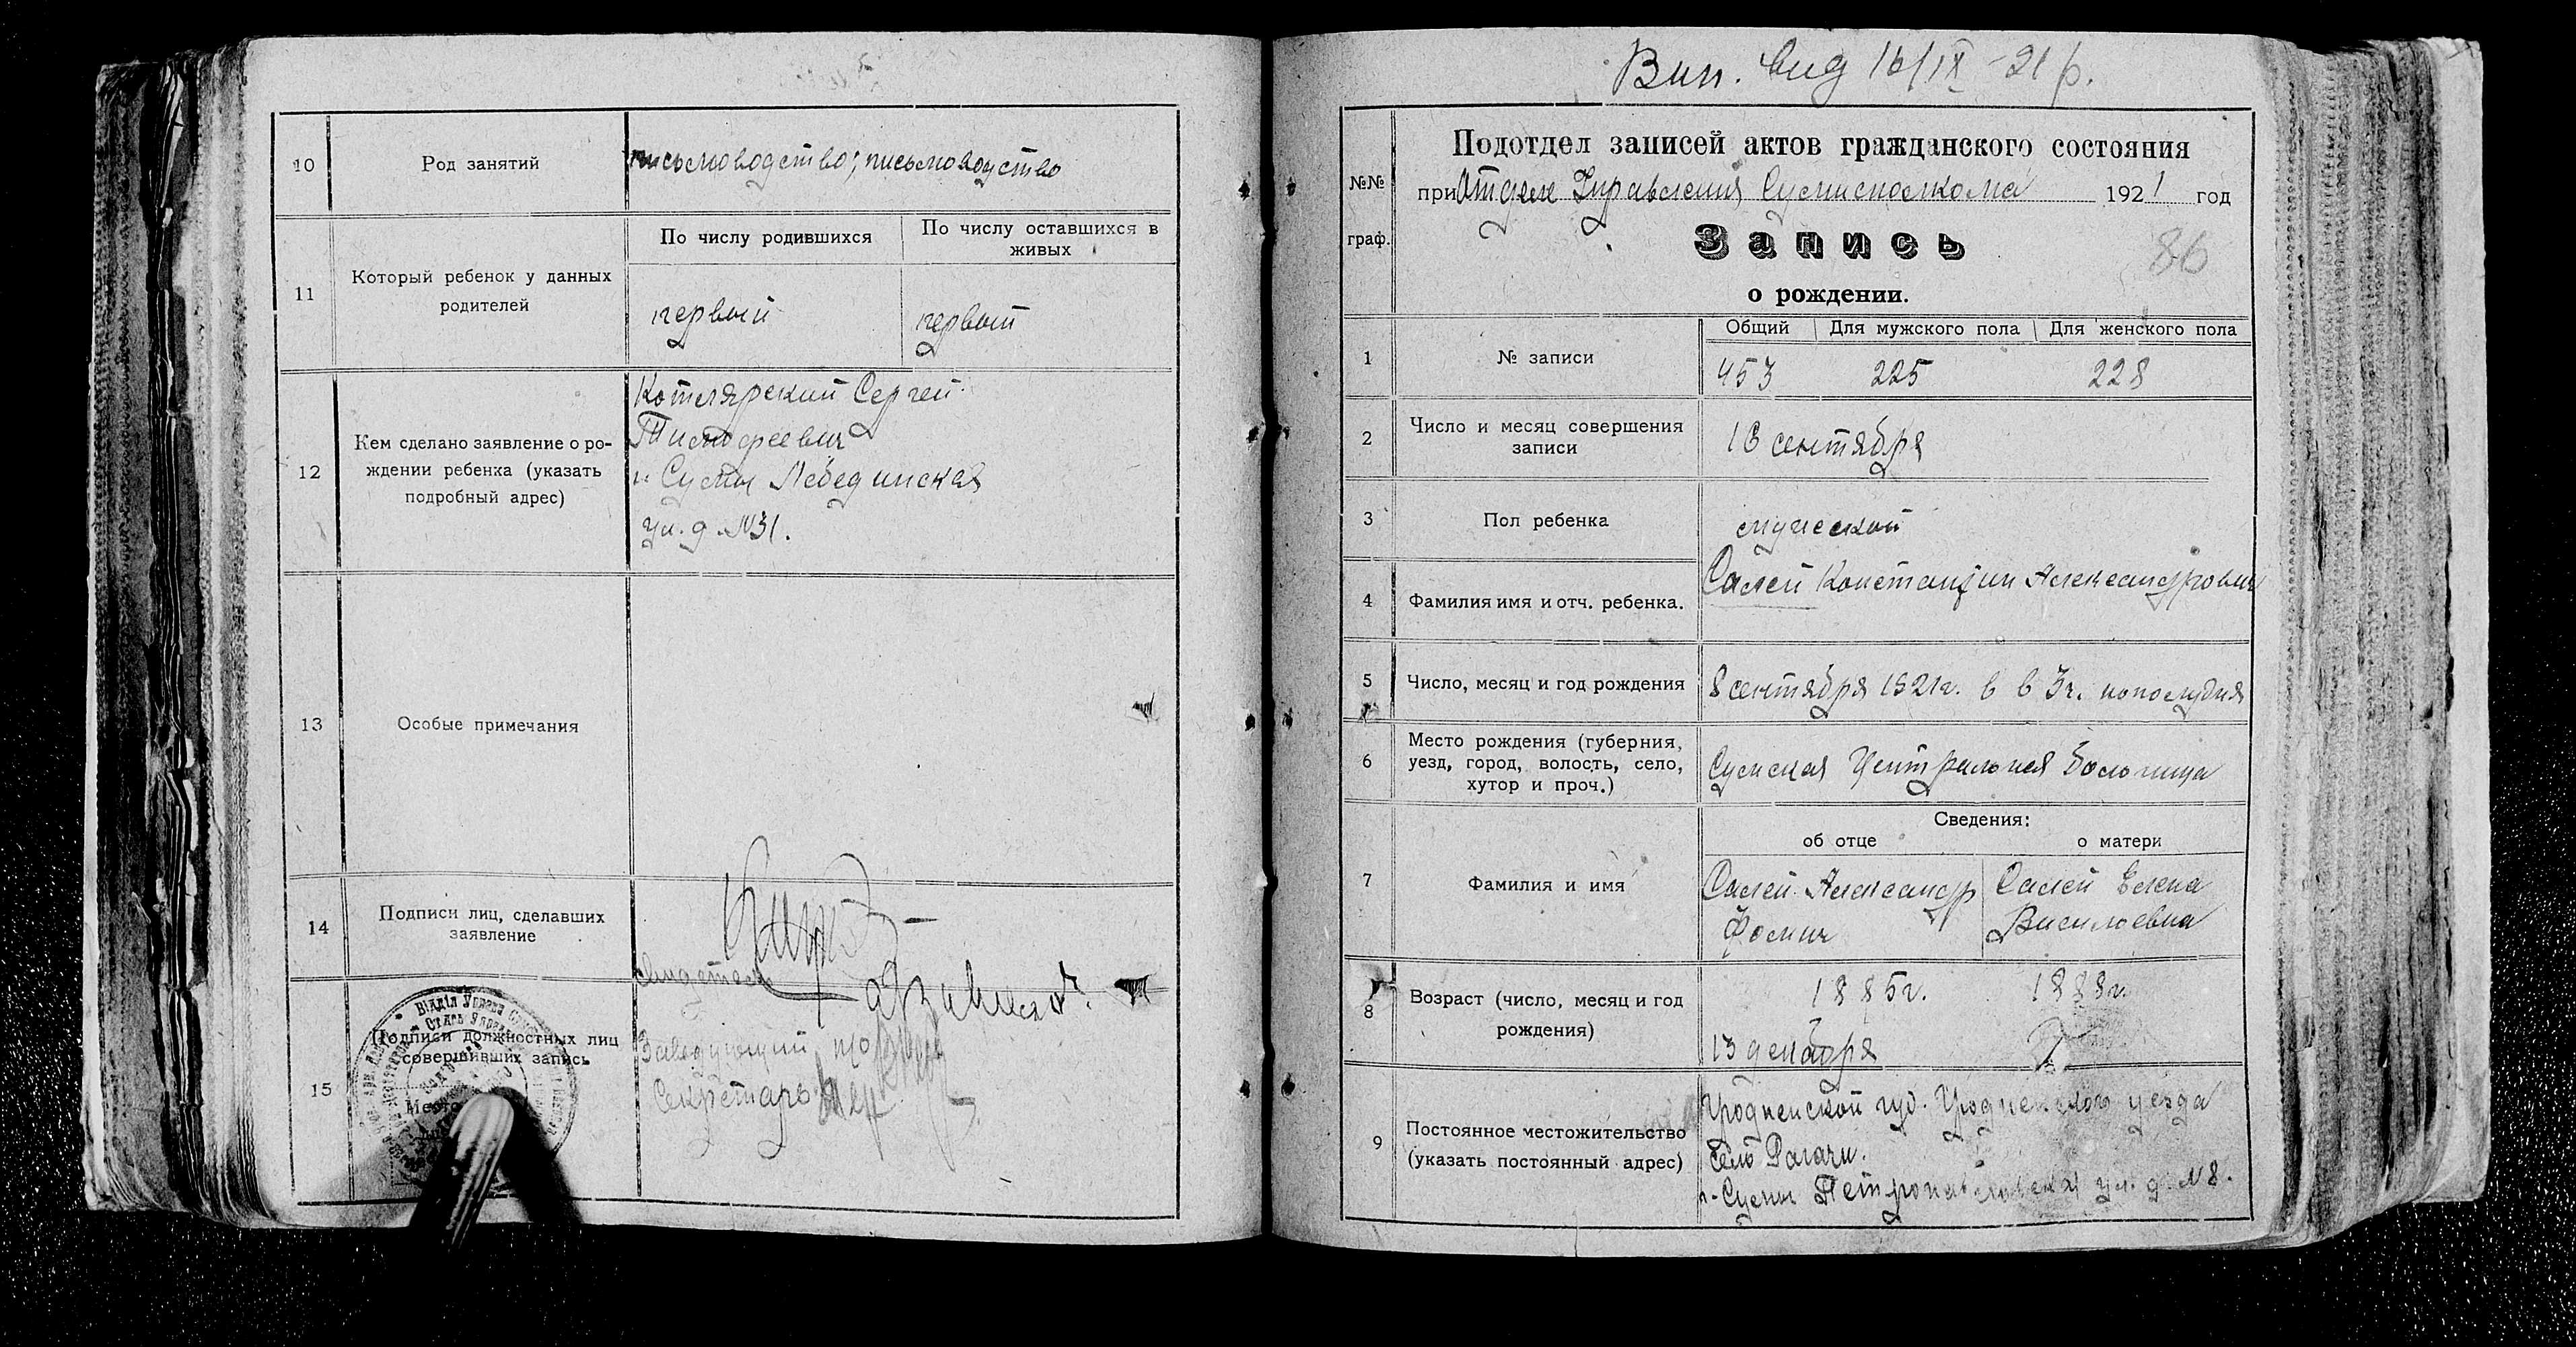 10
Род занятий
письмоводство; письмоводство
11
Который ребенок у данных
родителей
По числу родившихся
По числу оставшихся в
живых
первый
первый
12
Кем сделано заявление о ро-
ждении ребенка (указать
подробный адрес)
Котлярский Сергей
Тимофеевич
г. Сумы Лебединская
ул. д. №31.
13
Особые примечания
14
Подписи лиц, сделавших
заявление
15
Подписи должностных лиц
совершивших запись
Заведующий
Секретарь
Вип. вид 16/IX 21 р.
№№
граф.
Подотдел записей актов гражданского состояния
при Отделе Управления Сумисполкома 1921 год
Запись
86
о рождении.
1
№ записи
Общий Для мужского пола Для женского пола
453 225 228
2
Число и месяц совершения
записи
16 сентября
3
Пол ребенка
мужской
4
Фамилия имя и отч. ребенка.
Салей Константин Александрович
5
Число, месяц и год рождения
8 сентября 1921г. в в 3ч. пополудня
6
Место рождения (губерния,
уезд, город, волость, село,
хутор и проч.)
Сумская Центральная Больница
Сведения:
об отце о матери
7
Фамилия и имя
Салей Александр
Фомич
Салей Елена
Васильевна
8
Возраст (число, месяц и год
рождения)
1885г. 1888г.
13 декабря
9
Постоянное местожительство
(указать постоянный адрес)
Гродненской губ. Гродненского уезда
село Рогачи.
г. Сумы Петропавловская ул. д. №8.